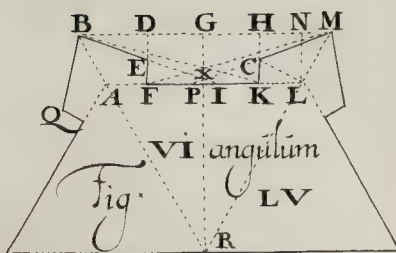 B D G H N M
E x C
A F P I K L
Q
VI angulum
Fig. LV
R